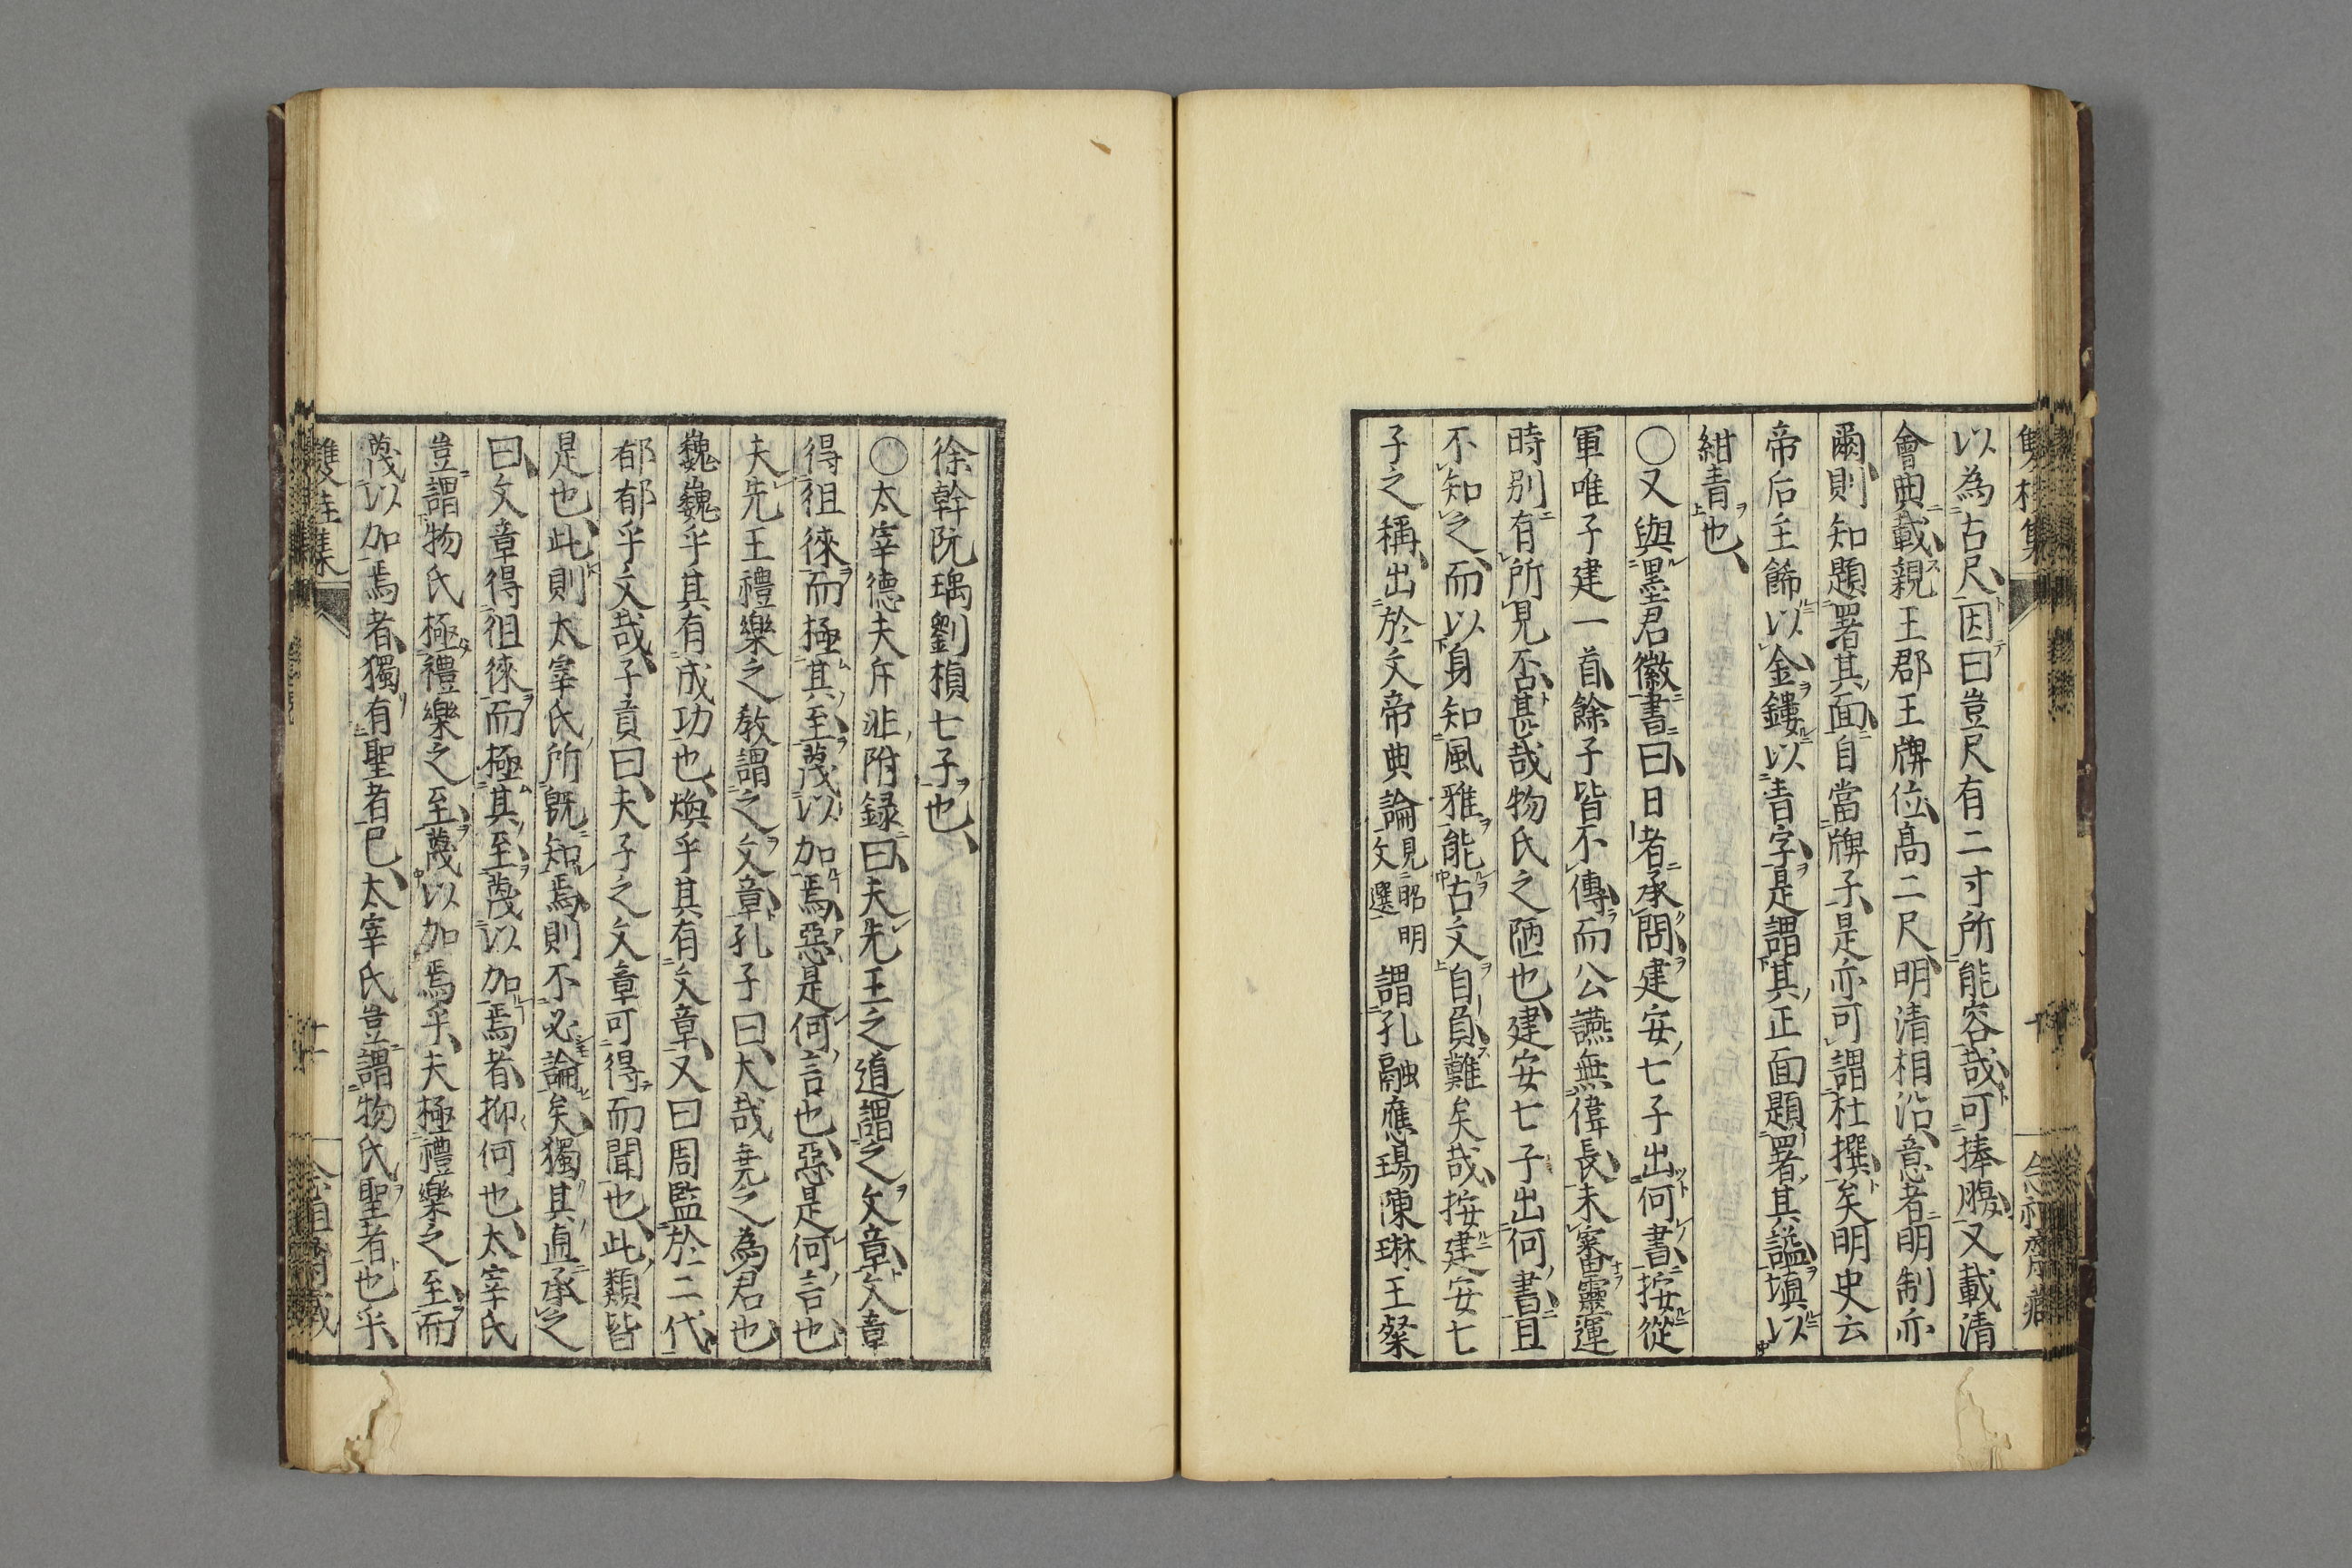 以為古尺因曰豈尺有二寸所能容哉可捧腹又載清
會典載親王郡王牌位高二尺明清相沿意者明制亦
爾則知題署其面自當牌子是亦可謂杜撰矣明史云
帝后主飾以金鏤以青字是謂其正面題署其謚填以
紺青也
〇又與墨君徽書曰日者承問建安七子出何書按從
軍唯子建一首餘子皆不傳而公讌無偉長未審靈運
時別有所見否甚哉物氏之陋也建安七子出何書且
不知之而以身知風雅能古文自負難矣哉按建安七
子之稱出於文帝典論見昭明文選謂孔融應瑒陳琳王粲
徐幹阮瑀劉楨七子也
〇太宰德夫斥非附録曰夫先王之道謂之文章文章
得徂徠而極其至蔑以加焉惡是何言也惡是何言也
夫先王禮樂之教謂之文章孔子曰大哉堯之為君也
巍巍乎其有成功也煥乎其有文章又曰周監於二代
郁郁乎文哉子貢曰夫子之文章可得而聞也此類皆
是也此則太宰氏所既知焉則不必論矣獨其直承之
曰文章得徂徠而極其至蔑以加焉者抑何也太宰氏
豈謂物氏極禮樂之至蔑以加焉乎夫極禮樂之至而
蔑以加焉者獨有聖者已太宰氏豈謂物氏聖者也乎
雙桂集